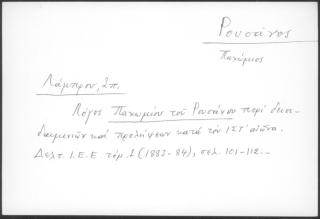 Ρουσάνος
Παχώμιος
Λάμπρου, Σπ.
Λόγος Παχωμίου τοῦ Ρουσάνου περί δεισι-
δαιμονιῶν καί προλήψεων κατά τόν ΙΣΤ' αἰῶνα.
Δελτ. Ι.Ε.Ε. τόμ. 1 (1883-84), σελ. 101-112.-